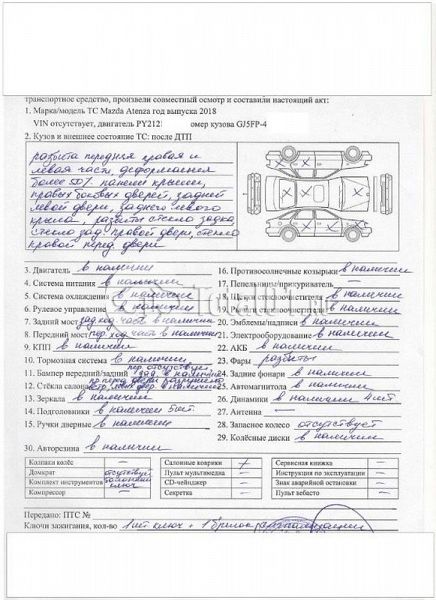 транспортное средство, произвели совместный осмотр и составили настоящий акт:
1. Марка/модель ТС Mazda Atenza год выпуска 2018
VIN отсутствует, двигатель PY212 омер кузова GJ5FP-4
2. Кузов и внешнее состояние ТС: после ДТП
разбита передняя правая и
левая части, деформация
более 50% панели крыши,
правых боковых дверей, задней
левой двери, заднего левого
крыла, разбиты стекло задка,
стекло зад. правой двери, стекло
правой перед двери
3. Двигатель в наличии
4. Система питания в наличии
5. Система охлаждения в наличии
6. Рулевое управление в наличии
7. Задний мост зад. ход. часть в наличии
8. Передний мост пер. ход. часть в наличии
9. КПП в наличии
10. Тормозная система в наличии
11. Бампер передний/задний пер отсутствует, зад. в наличии
12. Стёкла салона
13. Зеркала в наличии
14. Подголовники в наличии 5шт
15. Ручки дверные в наличии
30. Авторезина в наличии
16. Противосолнечные козырьки в наличии
17. Пепельница, прикуриватель —
в наличии
в наличии
20. Эмблемы/надписи в наличии
21. Электрооборудование в наличии
22. АКБ в наличии
23. Фары разбиты
24. Задние фонари в наличии
25. Автомагнитола в наличии
26. Динамики в наличии 4шт
27. Антенна —
28. Запасное колесо отсутствует
29. Колёсные диски в наличии
Колпаки колёс — Салонные коврики + Сервисная книжка —
Домкрат отсутствует Пульт мультимедиа — Инструкция по эксплуатации —
Комплект инструментов баллонный ключ CD-чейнджер — Знак аварийной остановки —
Компрессор — Секретка — Пульт вебасто —
Передано: ПТС №
Ключи зажигания, кол-во 1 шт ключ + 1 брелок сигнализации